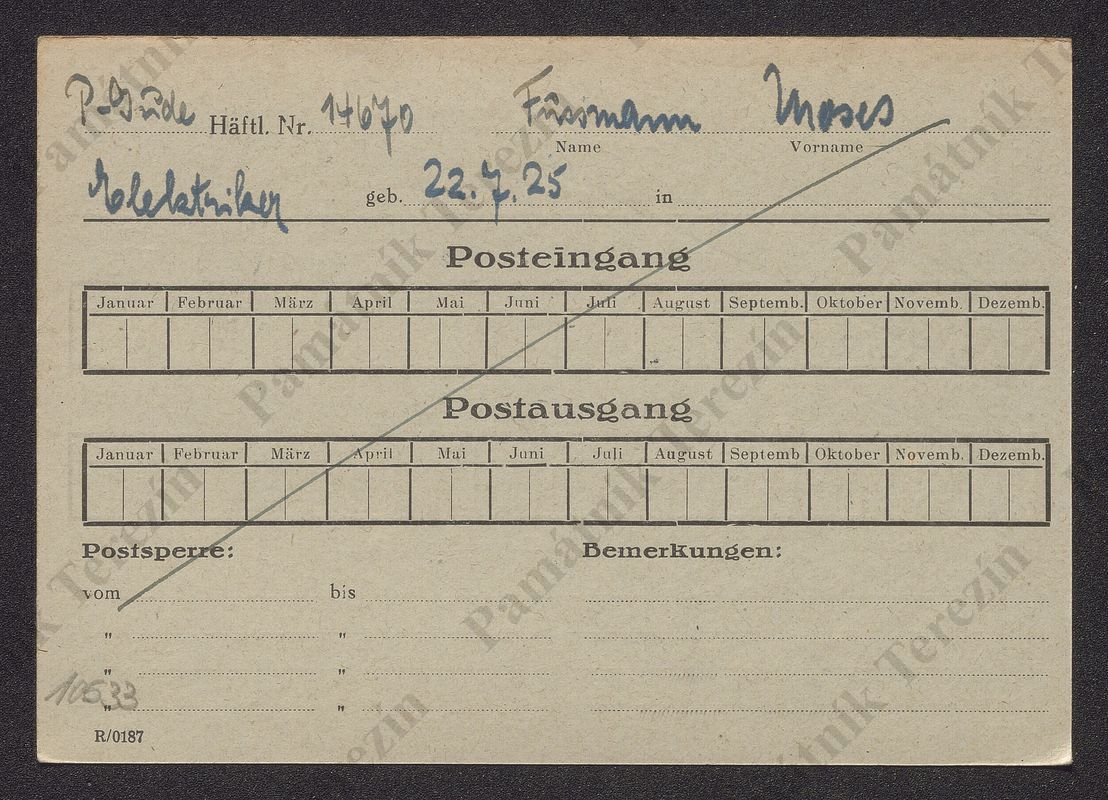 P-Jude Häftl. Nr. 14670 Fussmann Moses
Name Vorname
Elektriker geb. 22.7.25 in
Posteingang
Januar Februar März April Mai Juni Juli August Septemb. Oktober Novemb. Dezemb.
Postausgang
Januar Februar März April Mai Juni Juli August Septemb Oktober Novemb. Dezemb.
Postsperre: Bemerkungen:
vom bis
" "
" "
10533
" "
R/0187
Památník Terezín